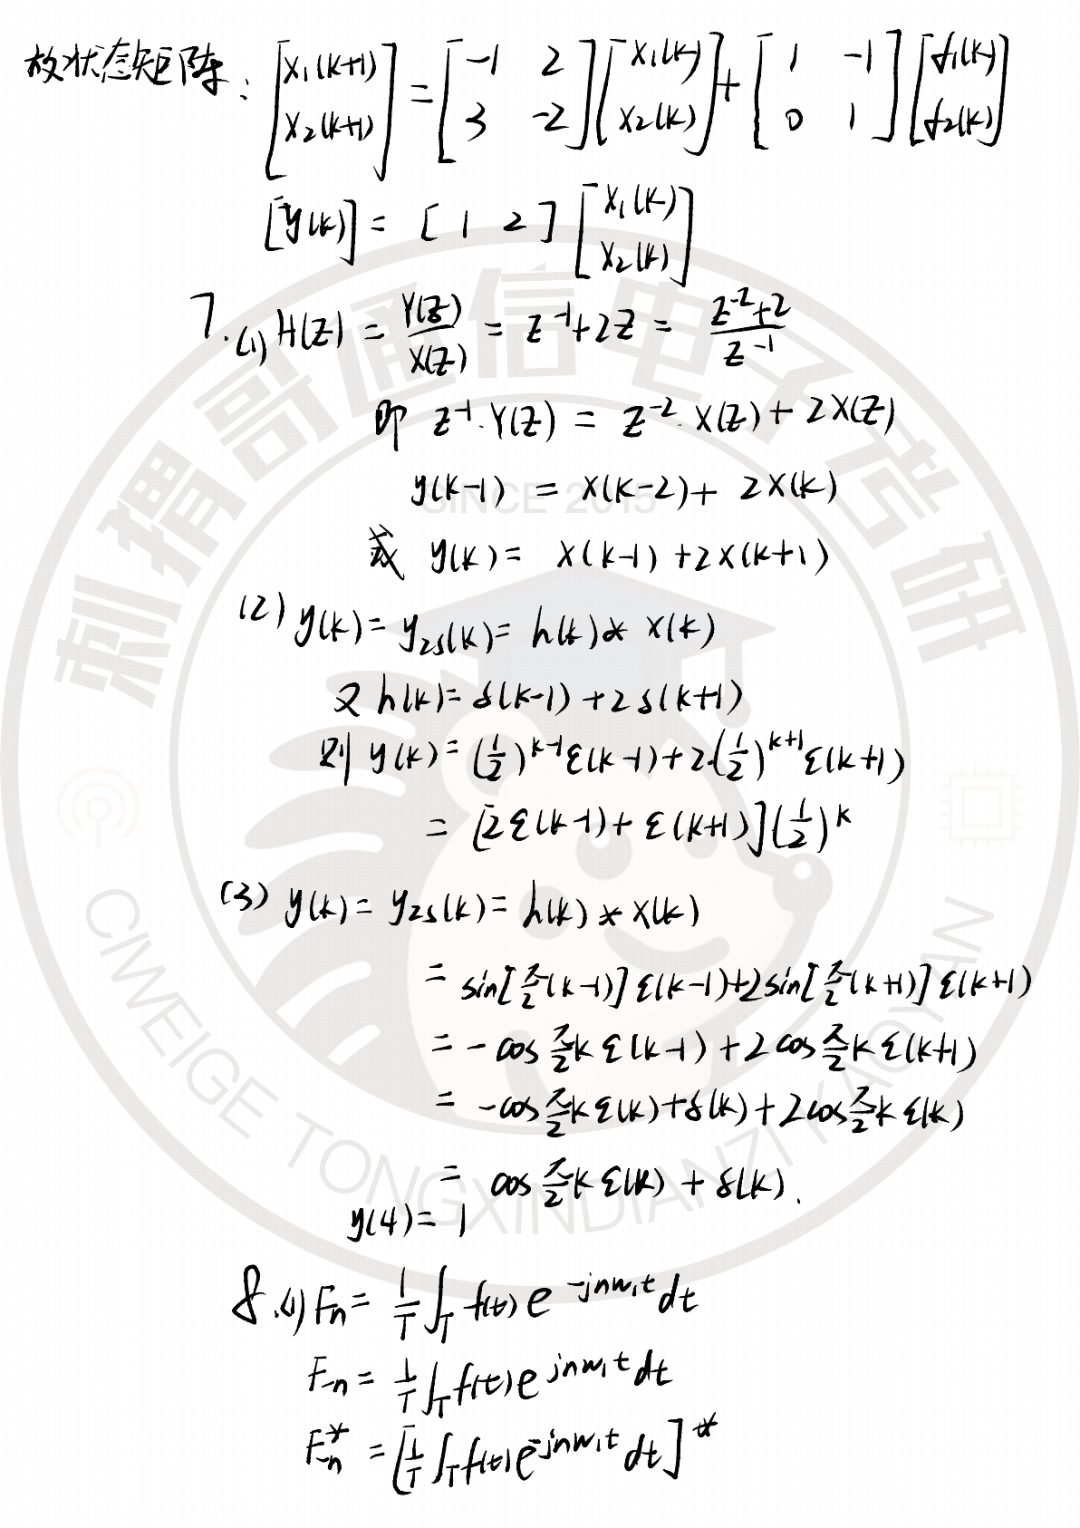 故状态矩阵: [x₁(k+1) x₂(k+1)] = [-1 2 3 -2] [x₁(k) x₂(k)] + [1 -1 0 1] [f₁(k) f₂(k)]
[y(k)] = [1 2] [x₁(k) x₂(k)]
7.(1) H(z) = Y(z)/X(z) = z⁻¹+2z = (z⁻²+2)/z⁻¹
即 z⁻¹·Y(z) = z⁻²·X(z) + 2X(z)
y(k-1) = x(k-2) + 2x(k)
或 y(k) = x(k-1) + 2x(k+1)
(2) y(k) = yzs(k) = h(k) * x(k)
又 h(k) = δ(k-1) + 2δ(k+1)
则 y(k) = (1/2)^(k-1) ε(k-1) + 2·(1/2)^(k+1) ε(k+1)
= [2ε(k-1) + ε(k+1)] (1/2)^k
(3) y(k) = yzs(k) = h(k) * x(k)
= sin[π/2(k-1)] ε(k-1) + 2sin[π/2(k+1)] ε(k+1)
= -cos π/2 k ε(k-1) + 2cos π/2 k ε(k+1)
= -cos π/2 k ε(k) + δ(k) + 2cos π/2 k ε(k)
= cos π/2 k ε(k) + δ(k).
y(4) = 1
8.(1) Fn = 1/T ∫_T f(t) e^(-jnw₁t) dt
F-n = 1/T ∫_T f(t) e^(jnw₁t) dt
F*-n = [1/T ∫_T f(t) e^(-jnw₁t) dt]*
刺猬哥通信电子考研
SINCE 2015
CIWEIGE TONGXINDIANZI KAOYAN